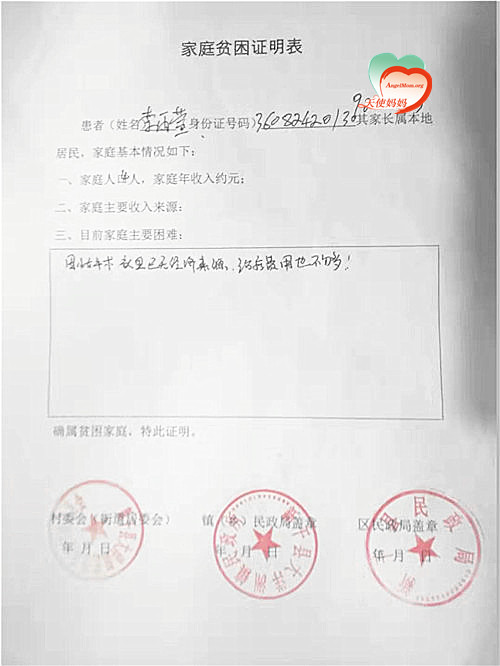 家庭贫困证明表
AngelMom.org
天使妈妈
患者（姓名 身份证号码）3608242013 其家长属本地
居民，家庭基本情况如下：
一、家庭人 人，家庭年收入约元；
二、家庭主要收入来源：
三、目前家庭主要困难：
手术 家里已无经济来源， 费用也不够！
确属贫困家庭，特此证明。
村委会（街道居委会） 镇 民政局盖章 区民政局盖章
年 月 日 年 月 日 年 月 日
新干县大洋洲镇民政
民政局